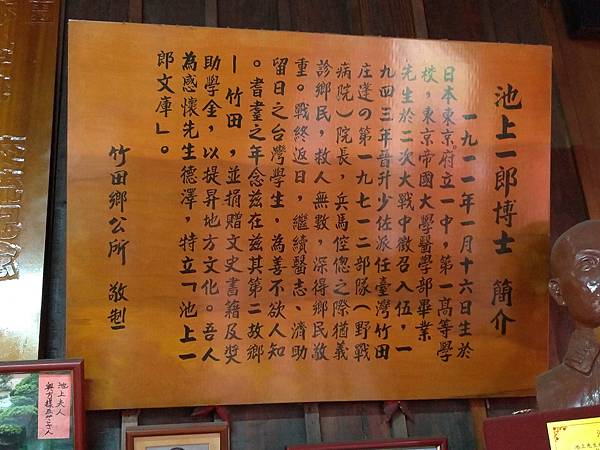 池上一郎博士 簡介
一九一一年一月十六日生於
日本東京府立一中，第一高等學
校，東京帝國大學醫學部畢業
先生於二次大戰中徵召入伍，一
九四三年晉升少佐派任臺灣竹田
庄逹の第一九七一二部隊（野戰
病院）院長，兵馬倥傯之際猶義
診鄉民，救人無數，深得鄉民敬
重。戰終返日，繼續醫志、濟助
留日之台灣學生。為善不欲人知
。耆耋之年念茲在茲其第二故鄉
—竹田，並捐贈文史書籍及獎
助學金，以提昇地方文化。吾人
為感懷先生德澤，特立「池上一
郎文庫」。
竹田鄉公所 敬製
池上夫人